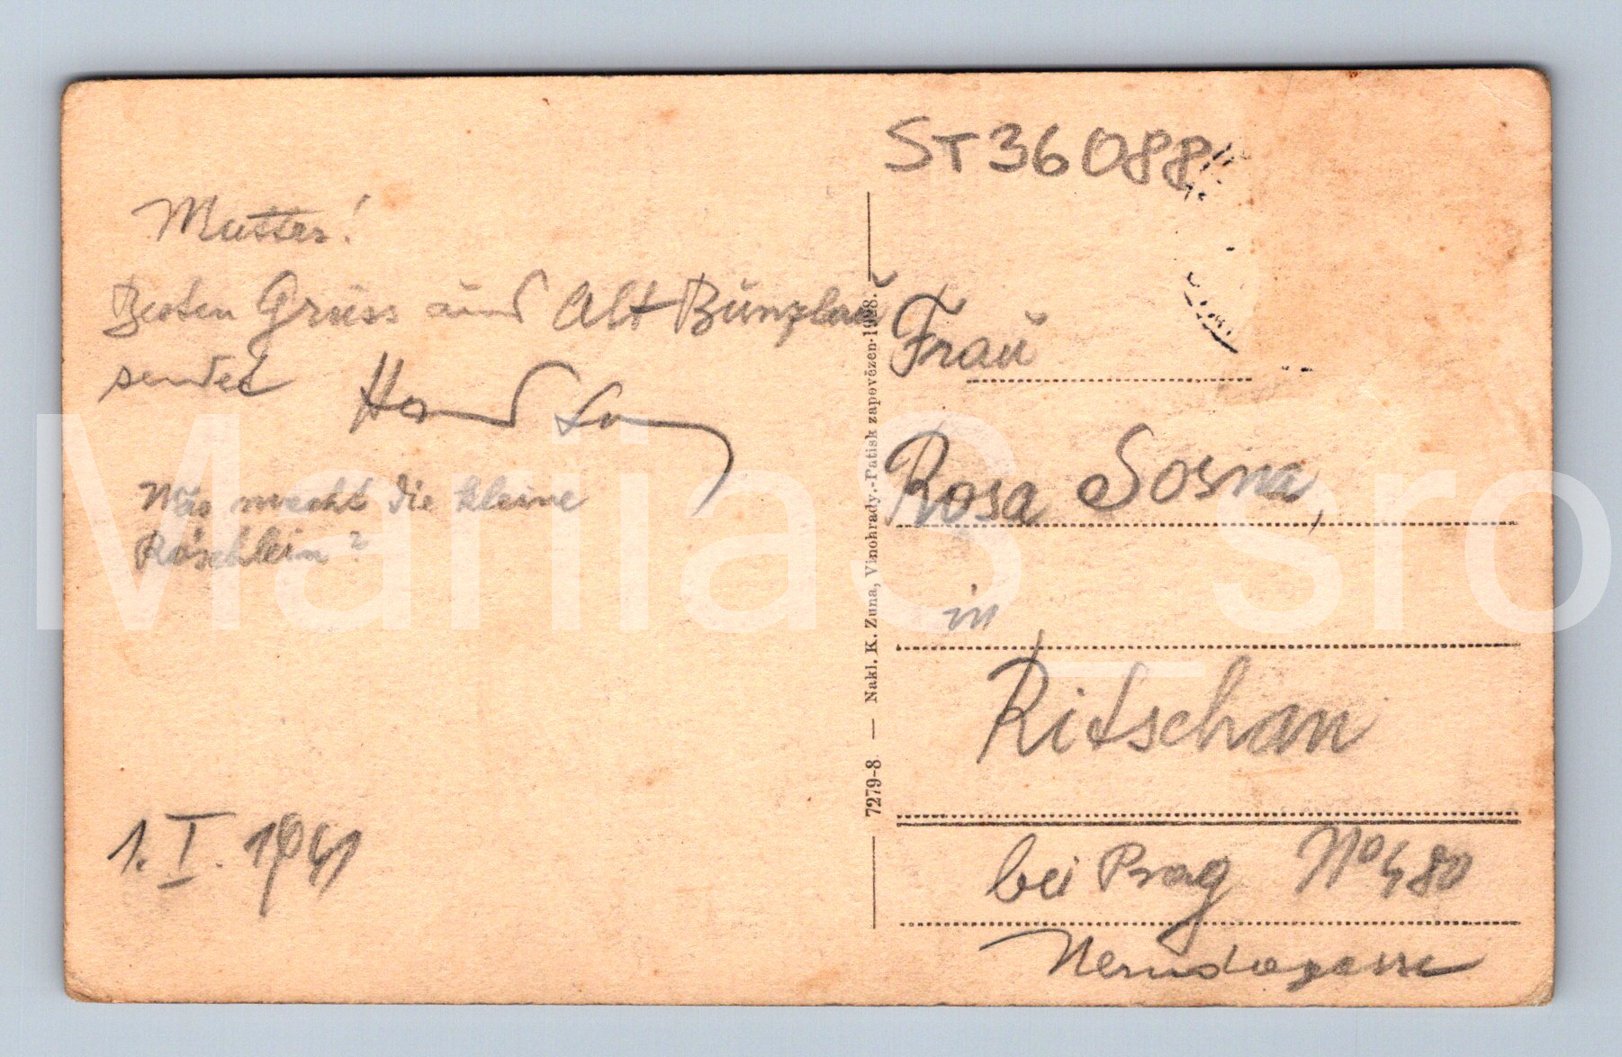 Mutter!
Besten Gruss aus Alt Bunzlau
sendet
Was macht die kleine
Röschlein?
1. I. 1941
ST36088
Frau
Rosa Sosna,
in
Ritschan
bei Prag No 480
Nerudagasse
7279-8 — Nakl. K. Zuna, Vinohrady.-Patisk zapovězen-1928.
MariiaS_sro